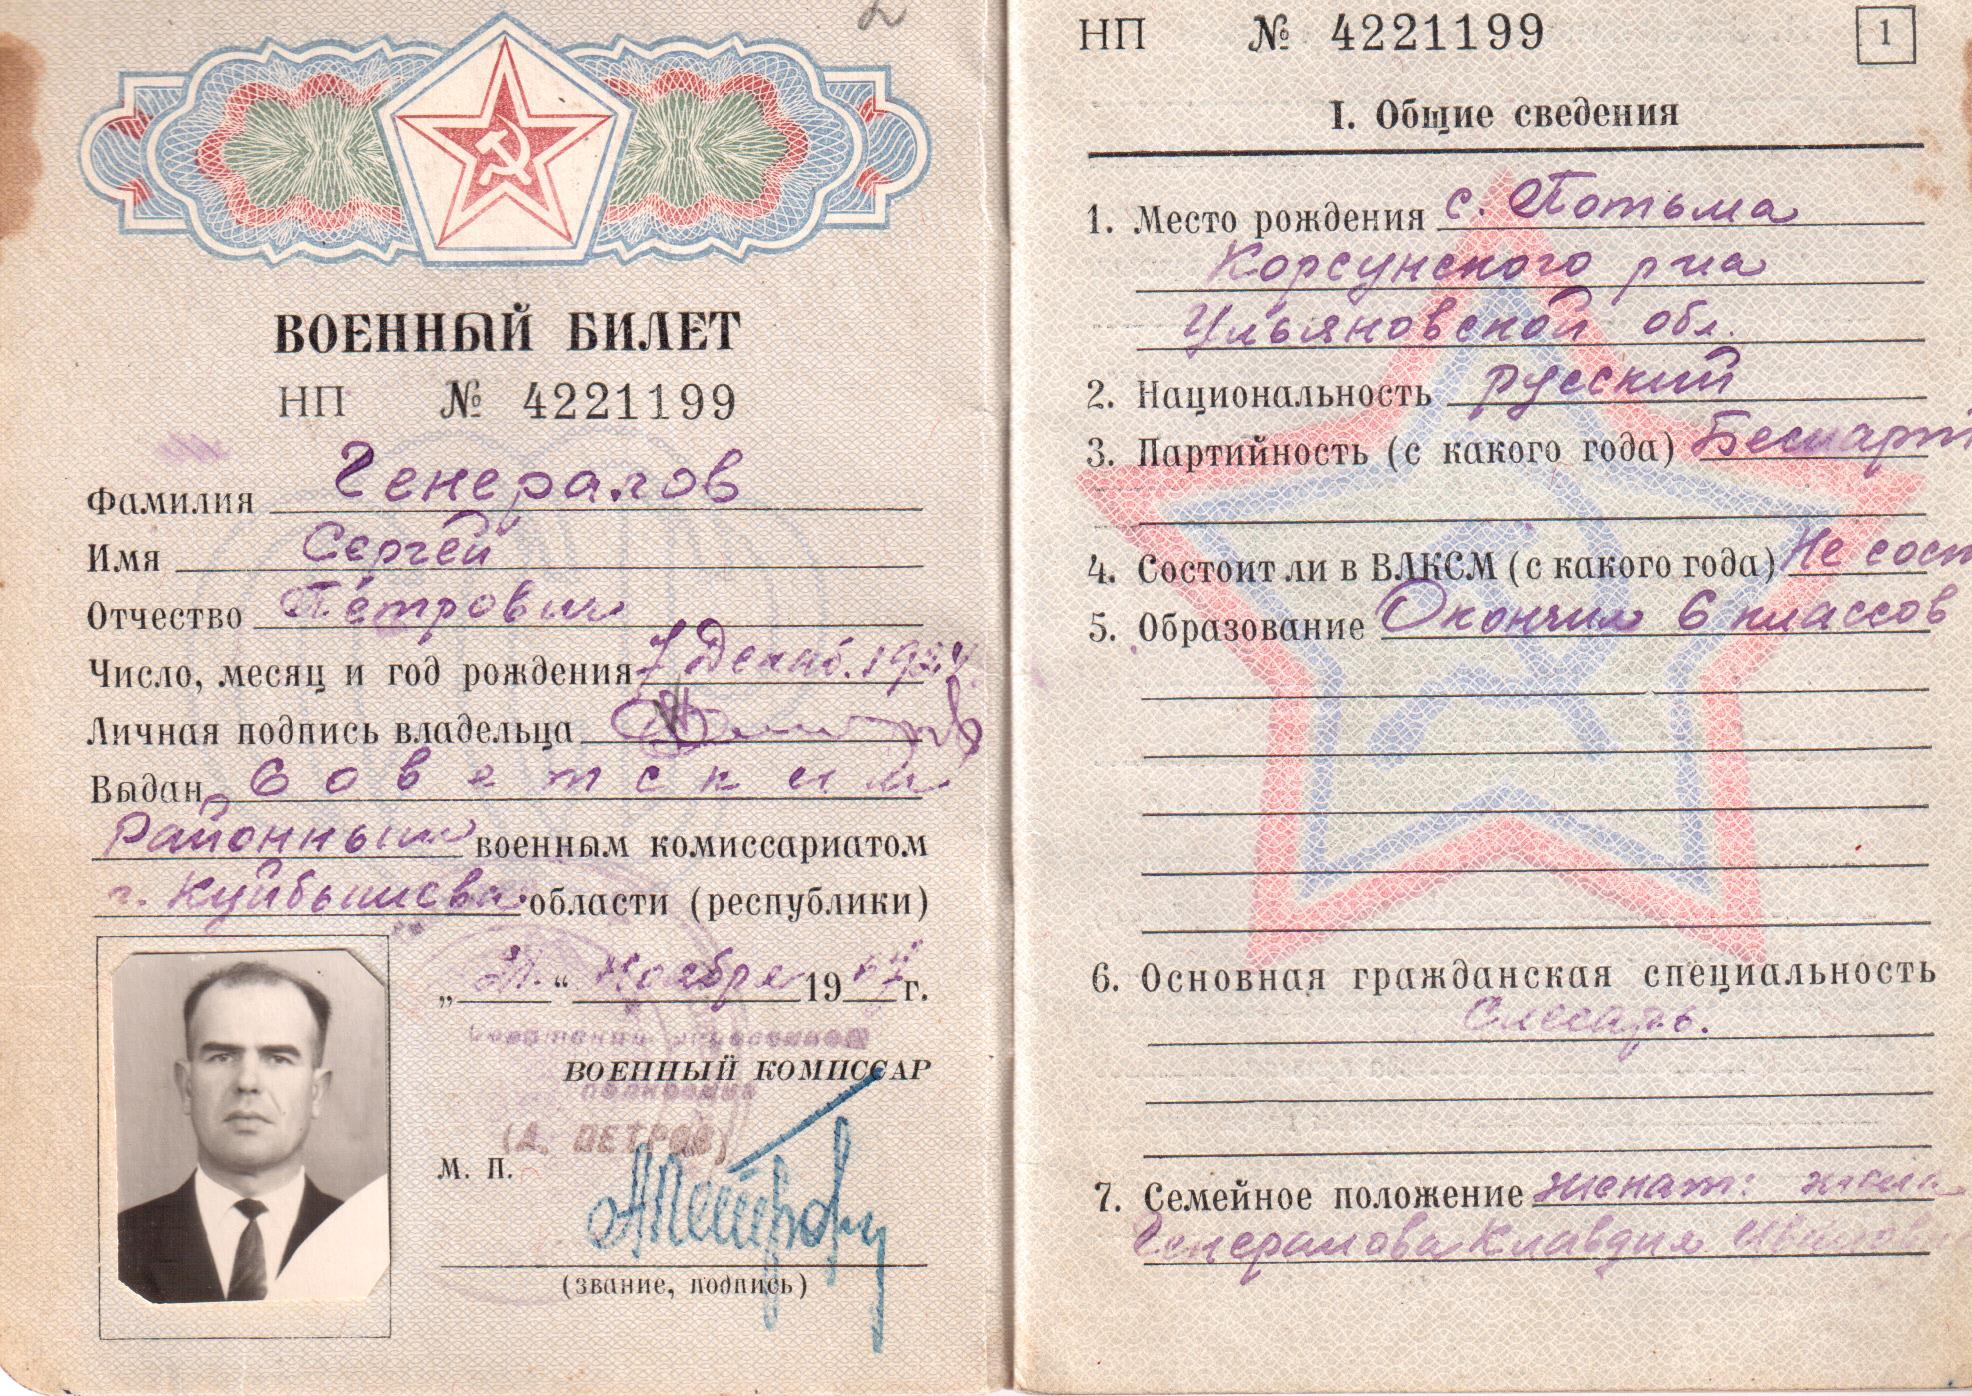 2
ВОЕННЫЙ БИЛЕТ
НП № 4221199
Фамилия Генералов
Имя Сергей
Отчество Петрович
Число, месяц и год рождения 7 Декаб. 1924
Личная подпись владельца
Выдан Советским
Районным военным комиссариатом
г. Куйбышева области (республики)
„ “ Ноября 1967 г.
ВОЕННЫЙ КОМИССАР
полковник
(А. ПЕТРОВ)
М. П.
(звание, подпись)
НП № 4221199 1
I. Общие сведения
1. Место рождения с. Потьма
Корсунского р-на
Ульяновской обл.
2. Национальность русский
3. Партийность (с какого года) Беспарт
4. Состоит ли в ВЛКСМ (с какого года) Не сост
5. Образование Окончил 6 классов
6. Основная гражданская специальность
Слесарь.
7. Семейное положение женат: жена
Генералова Клавдия